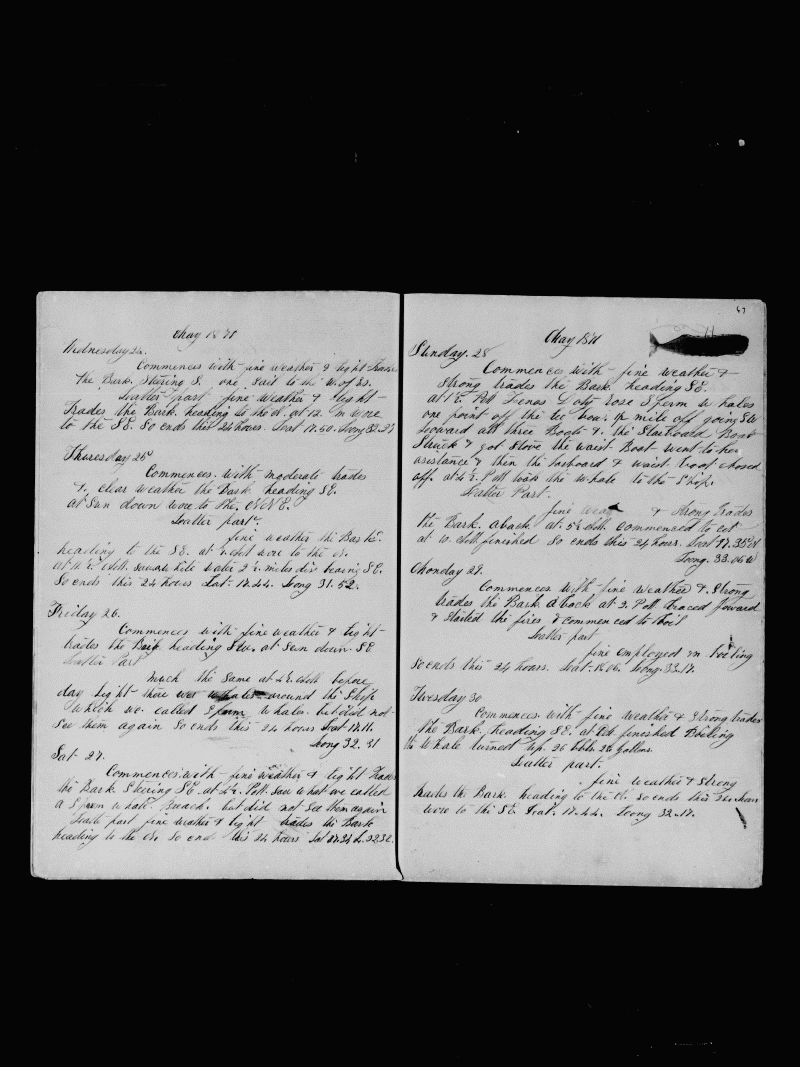 May 1871
Wednesday 24.
Commences with fine weather & light Trades
the Bark Stering S. one Sail to the W. of Us.
Latter part fine weather & light
Trades the Bark heading to the N. at 12. m wore
to the SE. So ends this 24 hours. Lat 17.50. Long 32.
Thuresday 25th
Commences with moderate trades
& clear weather the Bark heading SE.
at Sun down wore to the ENE.
Latter part.
fine weather the Bark
heading to the SE. at wore to the N.
at miles div bearing SE.
So ends this 24 hours Lat. 17.44. Long 31.52.
Friday 26.
Commences with fine weather & light
trades the Bark heading at Sun down SE
Latter Part
much the Same at 4½ AM before
day light there wer whales around the Ship
which we called Sperm Whales. but did not
See them again So ends this 24 hours Lat 17.11.
Long 32.31
Sat 27.
Commences with fine weather & light Trades
the Bark Stering SE. at 4½ P.M. Saw what we called
a Sperm whale Breach. but did not See them again
Latter part fine weather & light trades the Bark
heading to the N. So ends this 24 hours Lat
47
May 1871
Sunday. 28
Commences with fine weather &
Strong trades the Bark heading SE.
at 1½ P.M. Rose Sperm Whales
one point off the lee bow. mile off going
leeward all three Boats & the Starboard Boat
Struck & got Stove the waist Boat went to her
asistance & then the larboard & waist boat
off. at 4½ P.M. took the whale to the Ship.
Latter Part.
fine & Strong Trades
the Bark Aback at 5½ AM. Commenced to cut
at 10. AM finished So ends this 24 hours. Lat 17.35
Long. 33.06 W
Monday 29.
Commences with fine weather & Strong
trades the Bark Aback at 2. P.M braced foward
& Started the fires & commenced to Boil
Latter part
fine employed in Boiling
So ends this 24 hours. Lat. 18.06. Long. 33.17.
Tuesday 30
Commences with fine weather & Strong trades
the Bark heading SE. at finished Boiling
the Whale turned up 26 bbls 26 gallons.
Latter part.
fine weather & Strong
trades the Bark heading to the N. So ends this 24 hours
wore to the SE Lat. 17.44. Long 32.17.